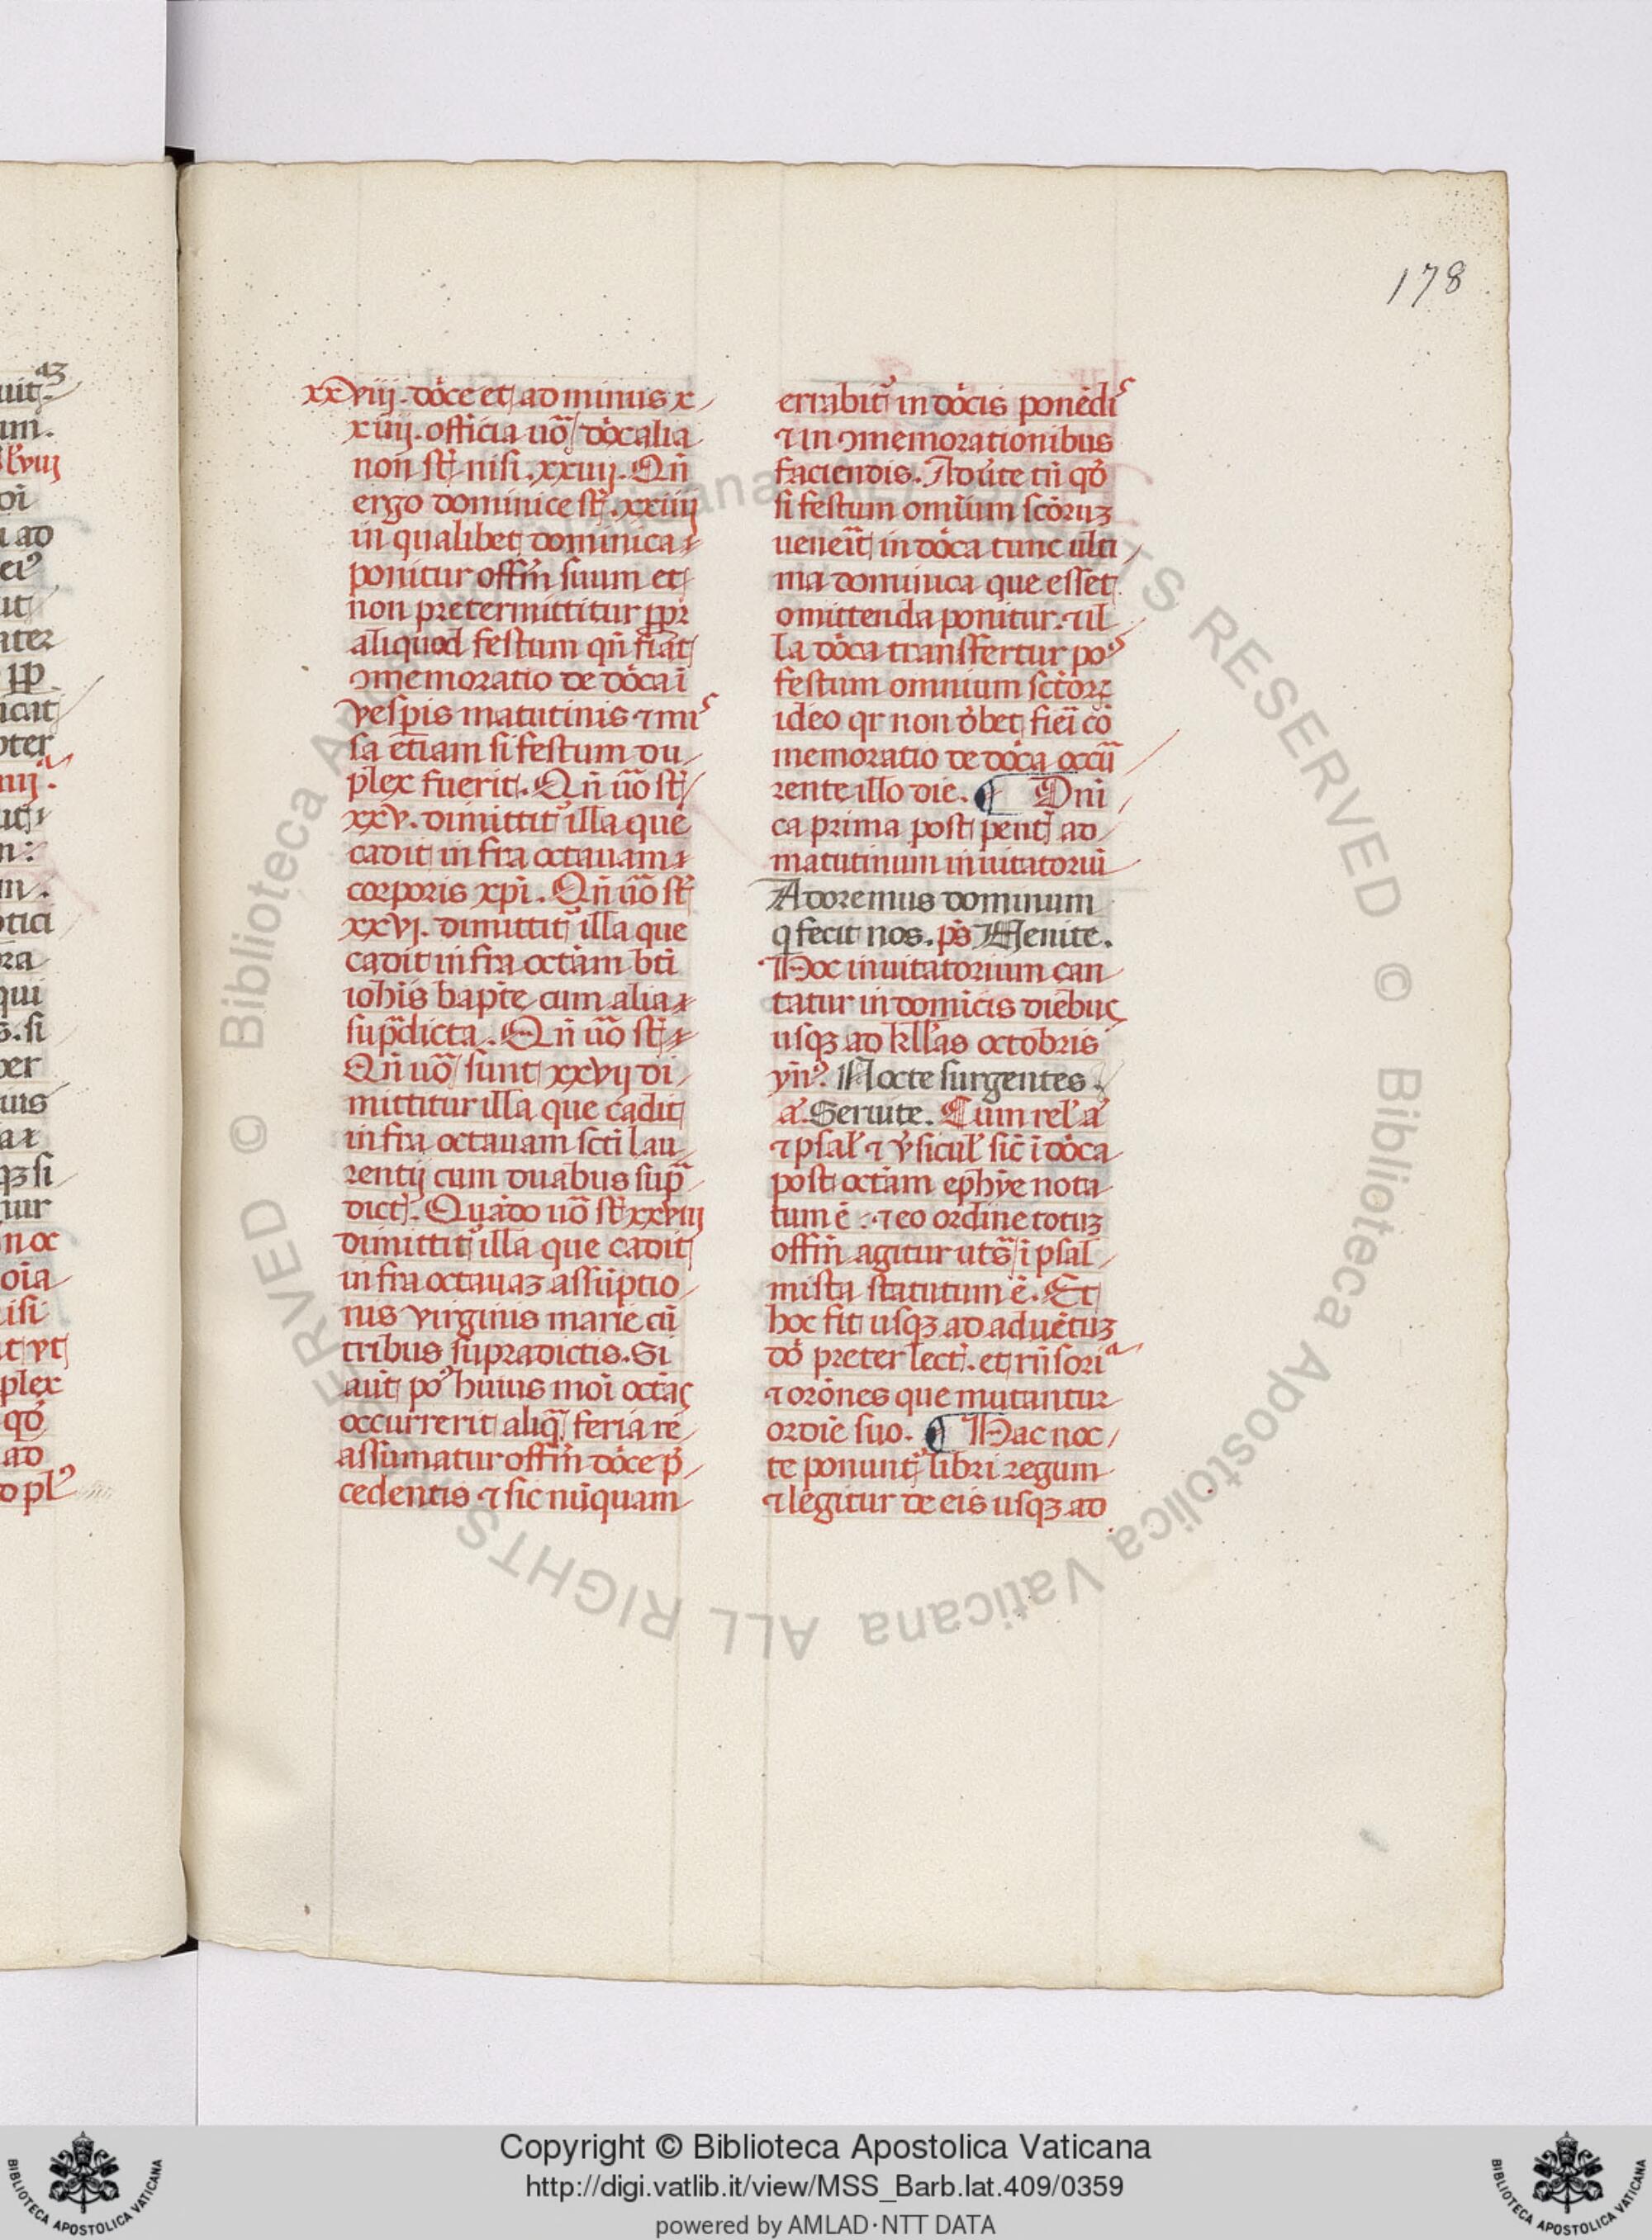 178
xxviij. dn̄ce et ad minus x
xiiij. officia uo᷑ dn̄calia
non st̄ nisi .xxiiij. Qn̄
ergo dominice st̄ .xxiiij
in qualibet dominica
ponitur offm̄ suum et
non pretermittitur ꝓpt̄
aliquod festum qn̄ fiat
ꝯmemoratio de dn̄ca ī
vesperis matutinis ⁊ mis
sa etiam si festum du
plex fuerit. Qn̄ uo᷑ st̄
xxv. dimittit᷑ illa que
cadit infra octauam
corporis xp̄i. Qn̄ uo᷑ st̄
xxvj. dimittit᷑ illa que
cadit infra octām bt̄i
ioh̄is bapt̄e cum alia
sup̄dicta. Qn̄ uo᷑ st̄
Qn̄ uo᷑ sunt xxvij di
mittitur illa que cadit
infra octauam sct̄i lau
rentij cum duabus sup̄
dict. Quādo uo᷑ st̄ xxviij
dimittit᷑ illa que cadit
infra octauaꝫ assūptio
nis virginis marie cū
tribus supradictis. Si
aut̄ poꝰ huius mōi octās
occurrerit aliq̄ feria re
assumatur offm̄ dn̄ce p̄
cedentis ⁊ sic nūquam
errabit᷑ in dn̄cis ponēdis
⁊ in ꝯmemorationibus
faciendis. Aduerte tn̄ qd̄
si festum omniūm sctōruꝫ
uenerīt in dn̄ca tunc ulti
ma dominica que esset
omittenda ponitur. ⁊ il
la dn̄ca transfertur poꝰ
festum omnium sctōrꝫ
ideo qr non dēbet fieri cō
memoratio de dn̄ca occū
rente illo die. ¶ Dni
ca prima post pent ad
matutinum inuitatoriū
Adoremus dominum
q̄ fecit nos. ps̄ Uenite.
Hoc inuitatorium can
tatur in domīcis diebus
usqꝫ ad kll̄as octobris
yn̄ꝰ. Nocte surgentes.
a᷑. Seruite. Cum rel᷑ a᷑
⁊ psal᷑ ⁊ v̄sicul᷑ sic̄ ī dn̄ca
post octām eph̄ye nota
tum ē. ⁊ eo ordine totuꝫ
offm̄ agitur ut s̄ ī psal
mista statutum ē. Et
hoc fit usqꝫ ad aduētuꝫ
dō preter lect. et rn̄soria
⁊ orōnes que mutantur
ordīe suo. ¶ Hac noc
te ponunt᷑ libri regum
⁊ legitur de eis usqꝫ ad
Copyright © Biblioteca Apostolica Vaticana
http://digi.vatlib.it/view/MSS_Barb.lat.409/0359
powered by AMLAD·NTT DATA
BIBLIOTECA APOSTOLICA VATICANA
BIBLIOTECA APOSTOLICA VATICANA
© Biblioteca Apostolica Vaticana ALL RIGHTS RESERVED © Biblioteca Apostolica Vaticana ALL RIGHTS RESERVED